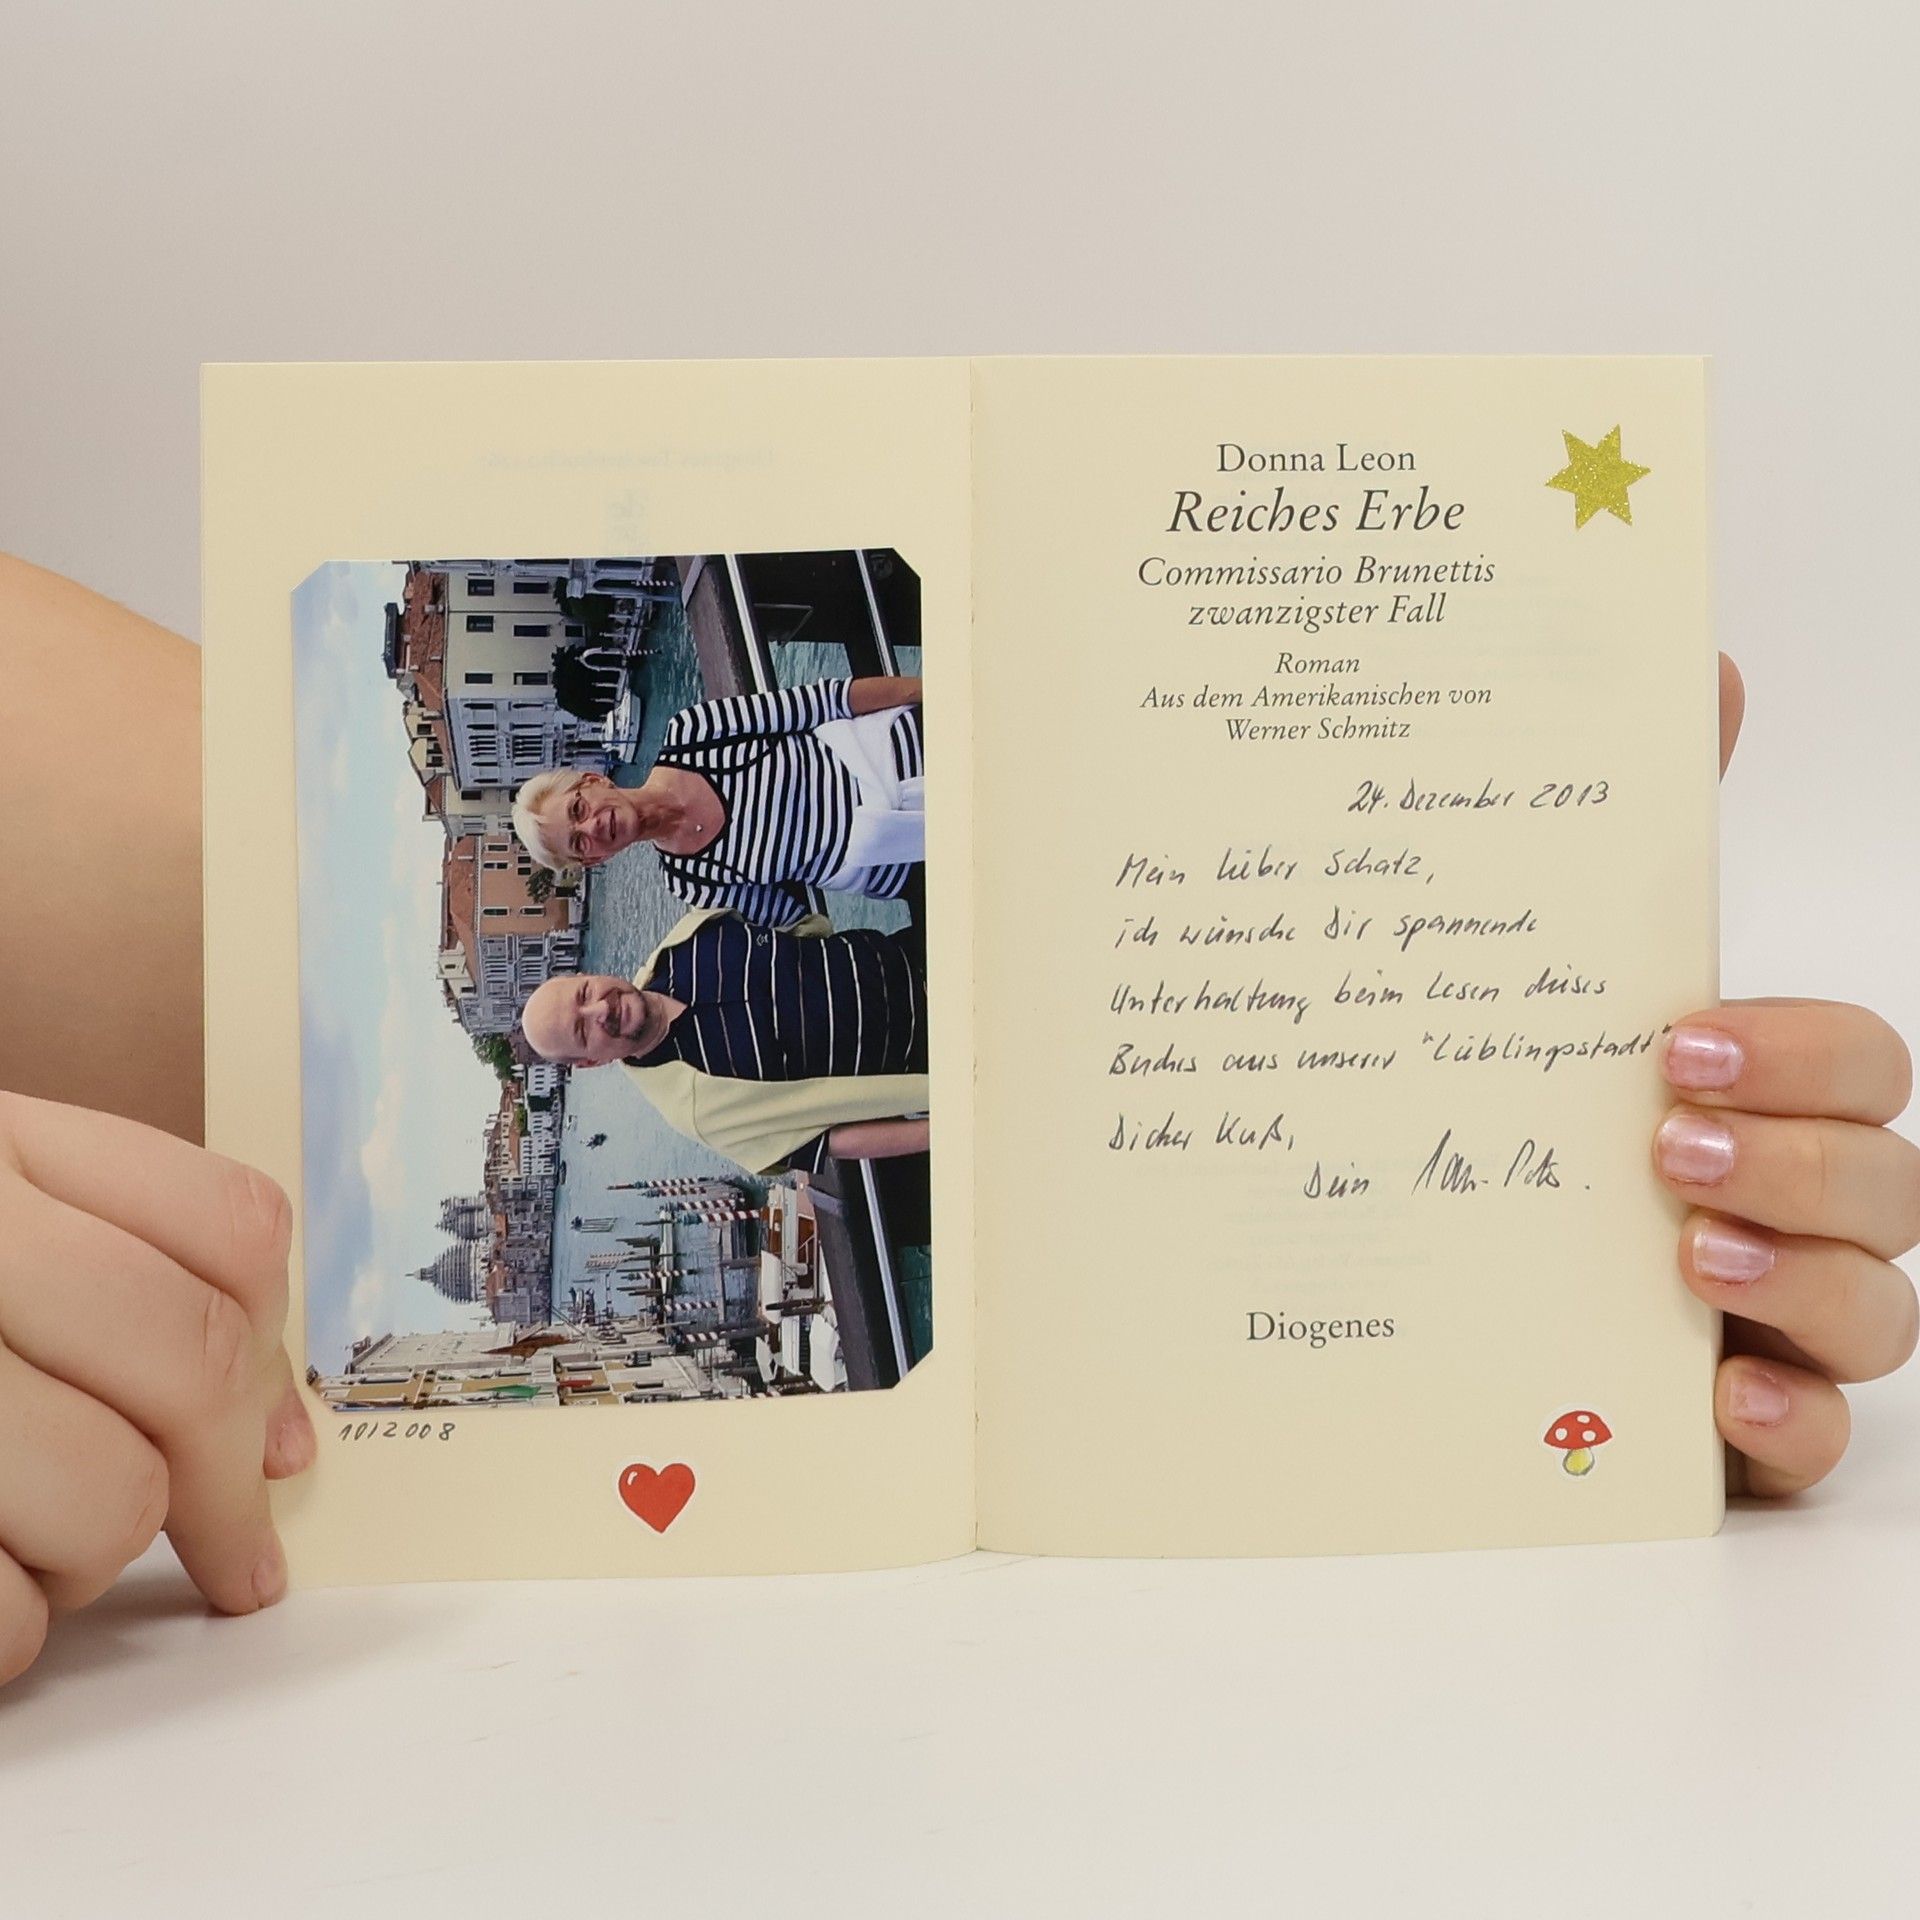 10/2008
Donna Leon
Reiches Erbe
Commissario Brunettis
zwanzigster Fall
Roman
Aus dem Amerikanischen von
Werner Schmitz
24. Dezember 2013
Mein lieber Schatz,
ich wünsche Dir spannende
Unterhaltung beim Lesen dieses
Buches aus unserer "Lieblingsstadt"
Dicker Kuß,
Dein
Diogenes